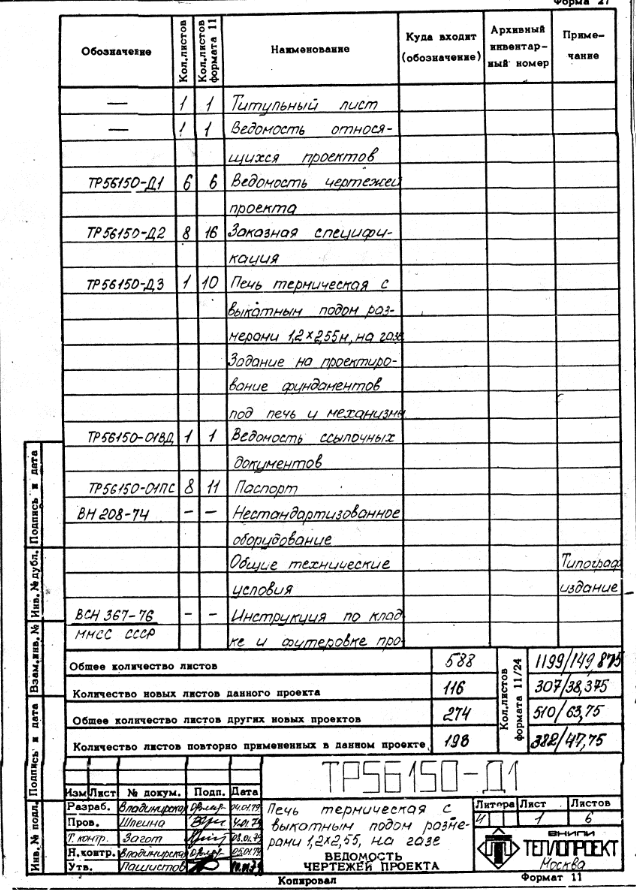 Форма 27
Обозначение Кол.листов Кол.листов формата 11 Наименование Куда входит (обозначение) Архивный инвентарный номер Примечание
— 1 1 Титульный лист
— 1 1 Ведомость относя-
щихся проектов
ТР56150-Д1 6 6 Ведомость чертежей
проекта
ТР56150-Д2 8 16 Заказная специфи-
кация
ТР56150-Д3 1 10 Печь термическая с
выкатным подом раз-
мерами 1,2×2,55м, на газе
Задание на проектиро-
вание фундаментов
под печь и механизмы
ТР56150-01ВД 1 1 Ведомость ссылочных
документов
ТР56150-01ПС 8 11 Паспорт
ВН 208-74 – – Нестандартизованное
оборудование
Общие технические Типограф
условия издание
ВСН 367-76 – – Инструкция по клад
ММСС СССР ке и футеровке про
Общее количество листов 588 1199/149,875
Количество новых листов данного проекта 116 307/38,375
Общее количество листов других новых проектов 274 510/63,75
Количество листов повторно примененных в данном проекте 198 382/47,75
Кол.листов формата 11/24
ТР56150-Д1
Изм Лист № докум. Подп. Дата
Разраб. Владимирская 04.01.79
Пров. Шлеина
Т. контр. Загот
Н.контр. Владимирская 05.01.79
Утв.
Печь термическая с
выкатным подом разме-
рами 1,2×2,55, на газе
ВЕДОМОСТЬ
ЧЕРТЕЖЕЙ ПРОЕКТА
Литера Лист Листов
И 1 6
ВНИПИ
ТЕПЛОПРОЕКТ
Москва
Копировал Формат 11
Инв. № подл. Подпись и дата Взам.инв. № Инв. № дубл. Подпись и дата